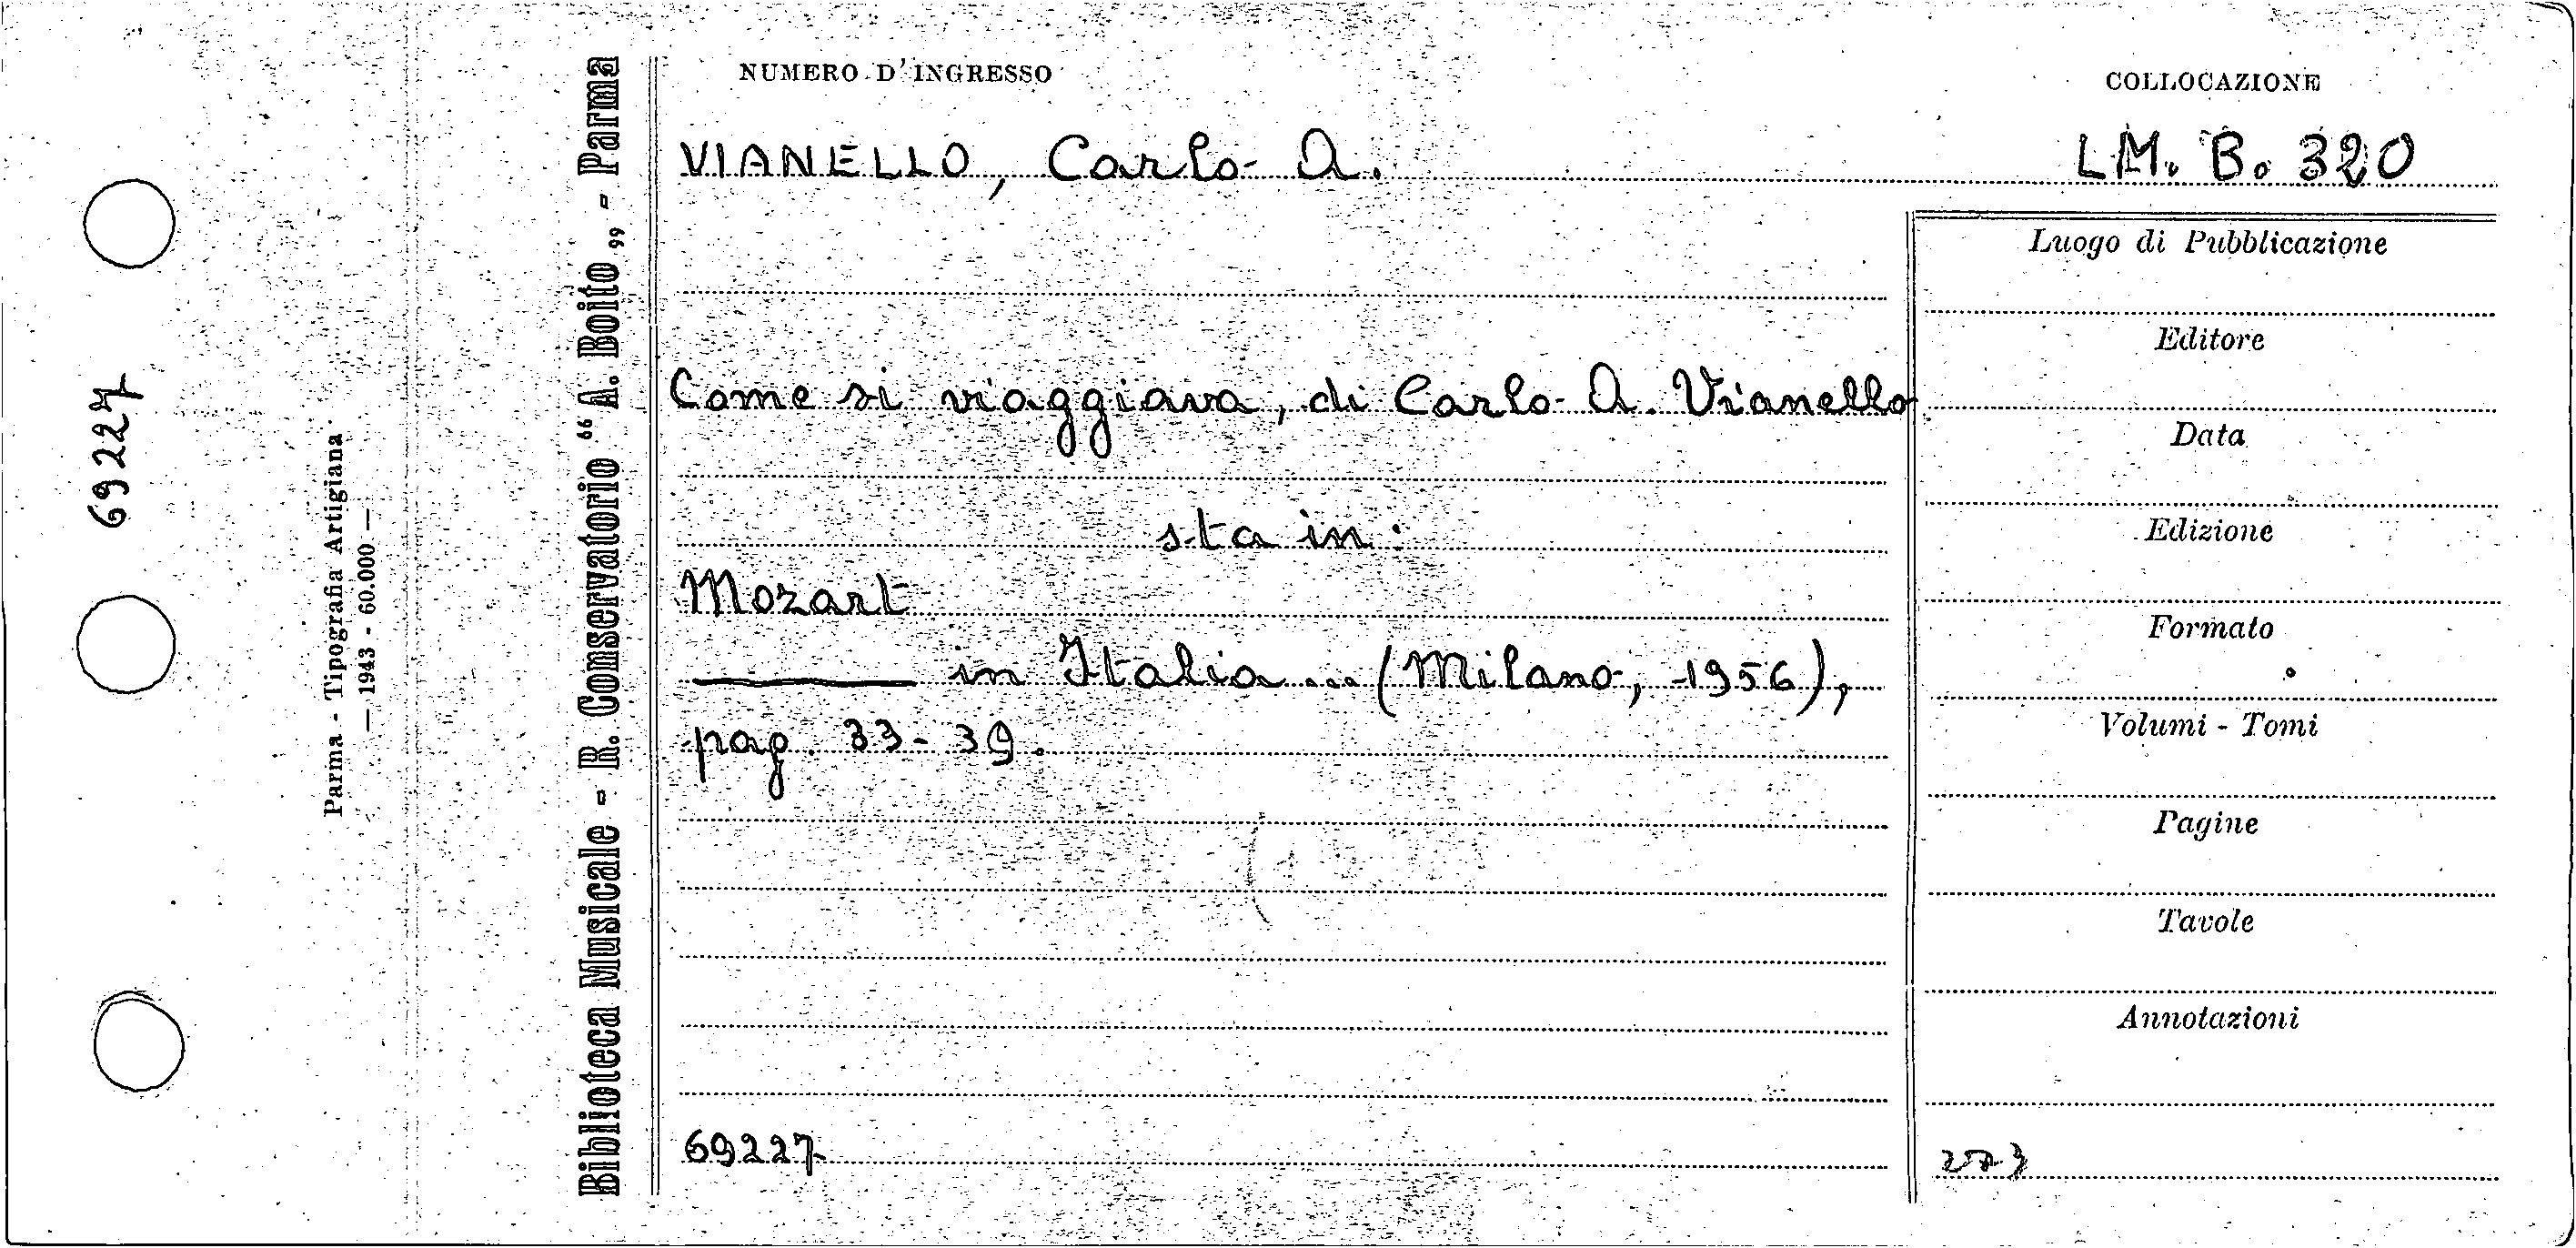 69227
Parma - Tipografia Artigiana
— 1943 - 60.000 —
Biblioteca Musicale - R. Conservatorio “ A. Boito „ - Parma
NUMERO D'INGRESSO
COLLOCAZIONE
VIANELLO, Carlo A.
LM. B. 320
Come si viaggiava, di Carlo A. Vianello
sta in:
Mozart
——— in Italia ... (Milano, 1956),
pag. 33-39.
69227
Luogo di Pubblicazione
Editore
Data
Edizione
Formato
Volumi - Tomi
Pagine
Tavole
Annotazioni